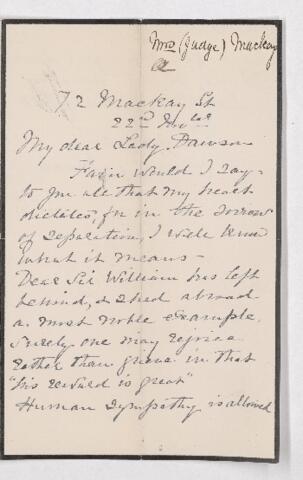 Mrs (Judge) Mackay
a
72 Mackay St
22nd Novbr
My dear Lady Dawson
Fain would I say
to you all that my heart
dictates, for in the sorrow
of separation, I well know
what it means -
Dear Sir William has left
behind, & shed abroad
a most noble example.
Surely one may rejoice
rather than grieve in that
"his reward is great"
Human sympathy is allowed